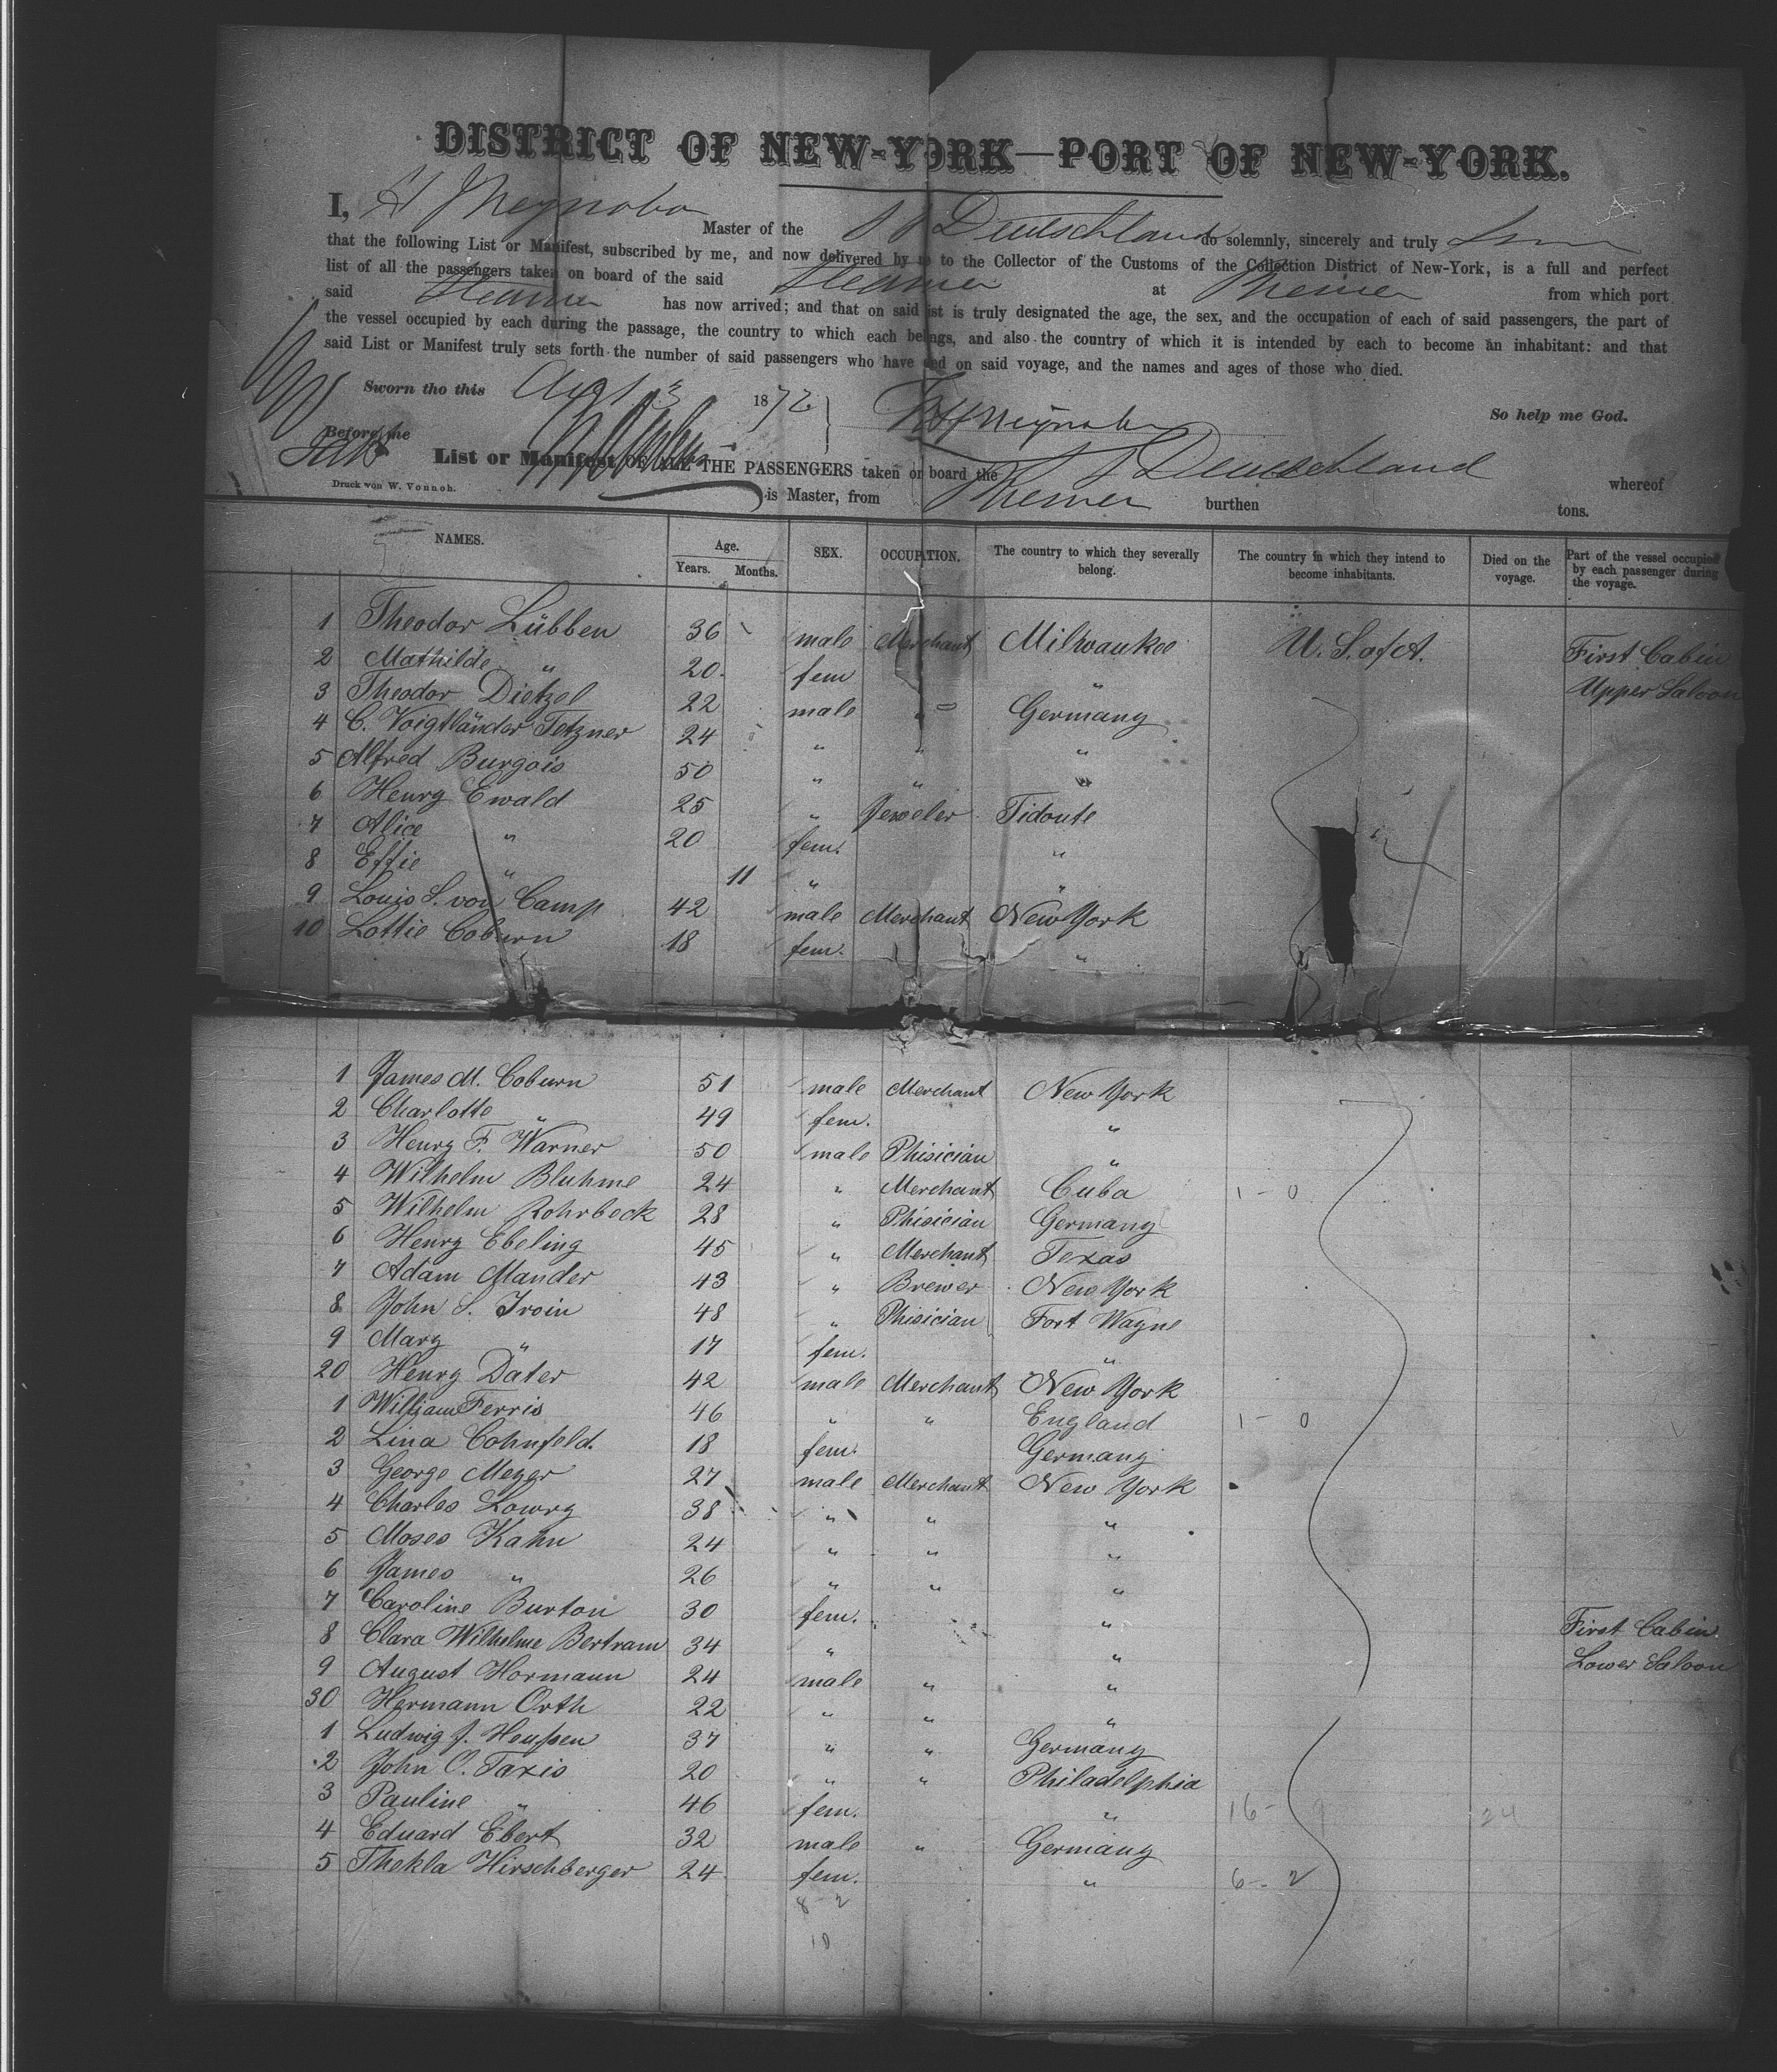 DISTRICT OF NEW-YORK—PORT OF NEW-YORK.
I, H Neynaber Master of the SS Deutschland do solemnly, sincerely and truly
that the following List or Manifest, subscribed by me, and now delivered by me to the Collector of the Customs of the Collection District of New-York, is a full and perfect
list of all the passengers taken on board of the said Steamer at Bremen from which port
said Steamer has now arrived; and that on said list is truly designated the age, the sex, and the occupation of each of said passengers, the part of
the vessel occupied by each during the passage, the country to which each belongs, and also the country of which it is intended by each to become an inhabitant: and that
said List or Manifest truly sets forth the number of said passengers who have died on said voyage, and the names and ages of those who died.
Sworn tho this 3 1872 Neynaber So help me God.
Before me
List or Manifest OF ALL THE PASSENGERS taken on board the SS Deutschland whereof
Druck von W. Vonnoh. is Master, from Bremen burthen tons.
NAMES. Age. Years. Months. SEX. OCCUPATION. The country to which they severally belong. The country in which they intend to become inhabitants. Died on the voyage. Part of the vessel occupied by each passenger during the voyage.
1 Theodor Lübben 36 male Merchant Milwaukee U. S. of A. First Cabin
2 Mathilde " 20 fem " Upper Saloon
3 Theodor Dietzel 22 male " Germany
4 C. Voigtländer Tetzner 24 " " "
5 Alfred Burgois 50 " " "
6 Henry Ewald 25 " Jeweler Tidoute
7 Alice " 20 fem. "
8 Effie " 11 " "
9 Louis S. von Camp 42 male Merchant New York
10 Lottie Coburn 18 fem. "
1 James M. Coburn 51 male Merchant New York
2 Charlotte " 49 fem. "
3 Henry F. Warner 50 male Phisician "
4 Wilhelm Bluhme 24 " Merchant Cuba 1 - 0
5 Wilhelm Rohrbeck 28 " Phisician Germany
6 Henry Ebeling 45 " Merchant Texas
7 Adam Mander 43 " Brewer New York
8 John S. Iroin 48 " Phisician Fort Wayne
9 Mary " 17 fem. "
20 Henry Däter 42 male Merchant New York
1 William Ferris 46 " " England 1 - 0
2 Lina Cohnfeld. 18 fem. Germany
3 George Meyer 27 male Merchant New York
4 Charles Lowry 38 " " "
5 Moses Kahn 24 " " "
6 James " 26 " " "
7 Caroline Burton 30 fem. " First Cabin
8 Clara Wilhelme Bertram 34 " " Lower Saloon
9 August Hormann 24 male " "
30 Hermann Orth 22 " " "
1 Ludwig J. Heußen 37 " " Germany
2 John O. Taxis 20 " " Philadelphia
3 Pauline " 46 fem. " 16 - 9 24
4 Eduard Ebert 32 male " Germany
5 Thekla Hirschberger 24 fem. " 6 - 2
8 - 2
10